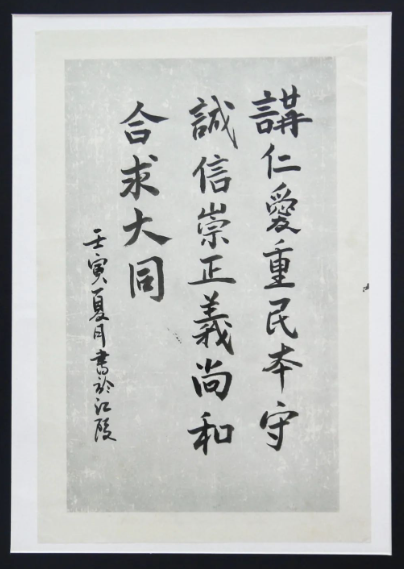 講仁愛重民本守
誠信崇正義尚和
合求大同
壬寅夏月書於江陵